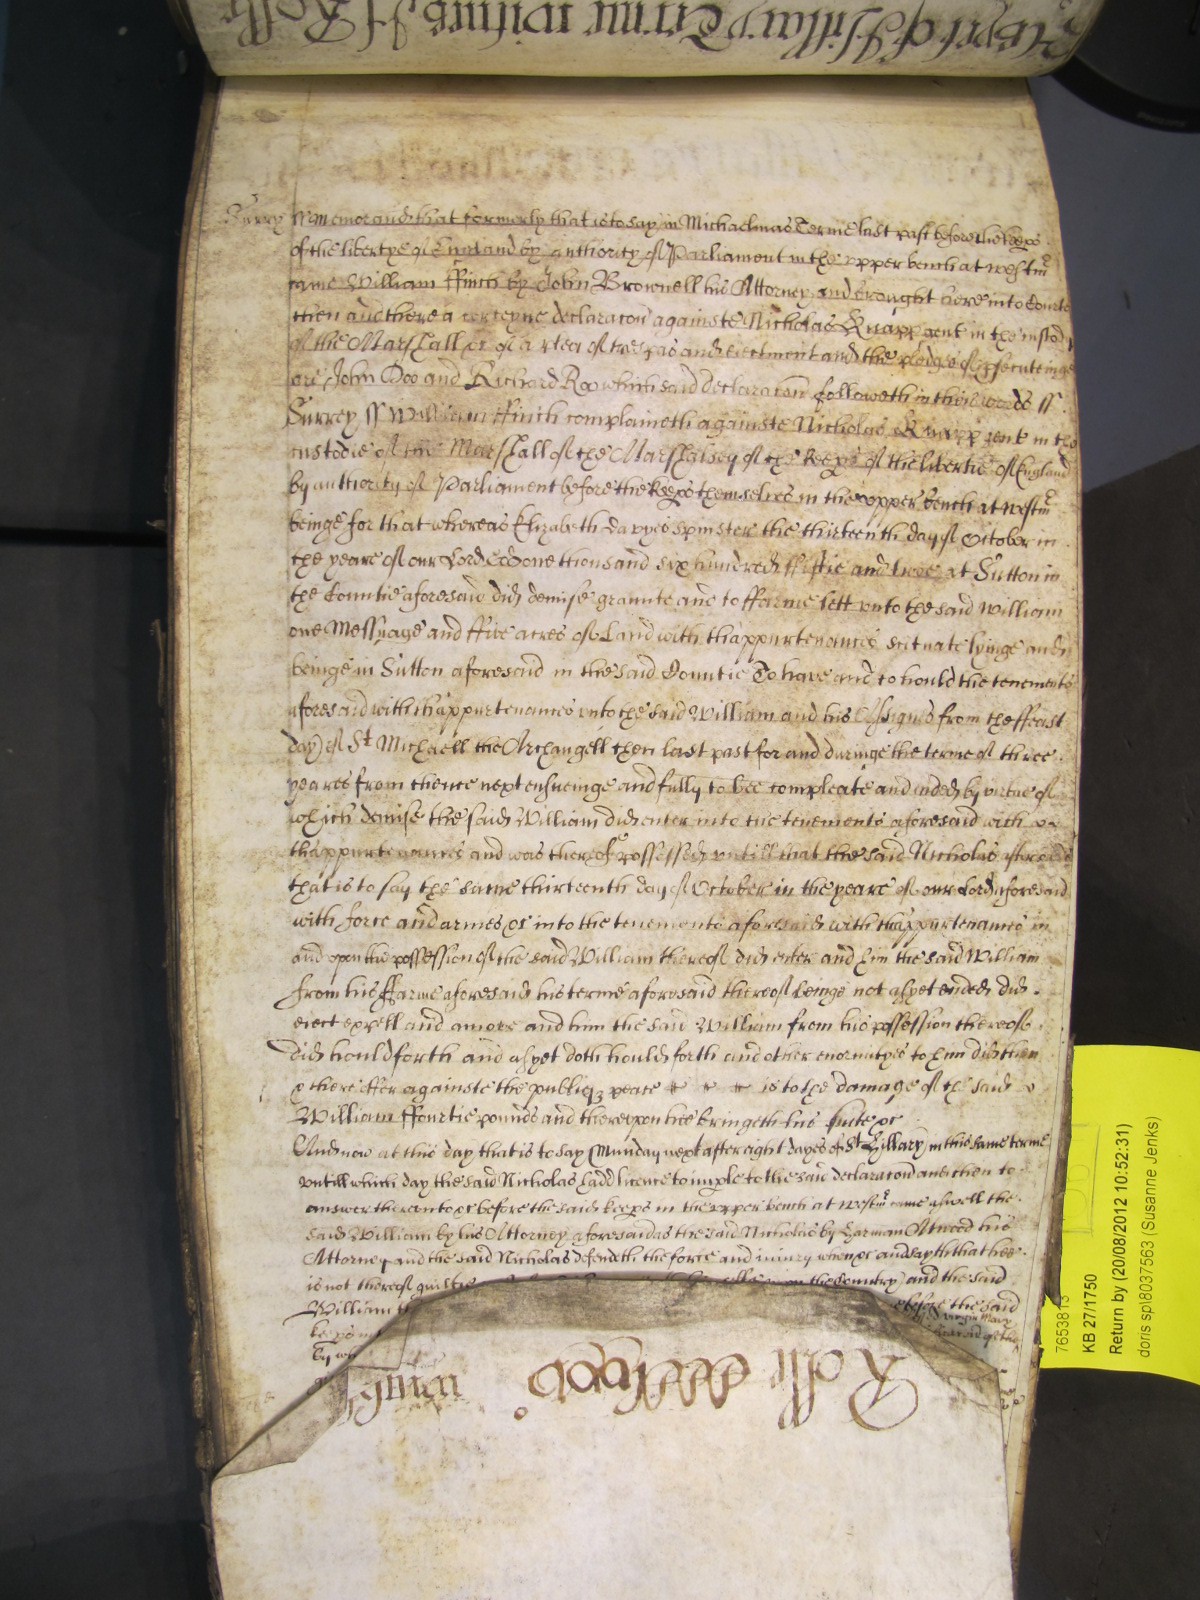 Surry ss Memorand that formerly that is to say in Michaelmas Terme last past before the keeps
of the libertye of England by authority of Parliament in the upper bench at westmr
came William ffinch by John Brownell his Attorney and brought here into Courte
then and there a certeyne declaracon againste Nicholas Knapp gent in the custody
of the Marshall &c of a plea of trespas and ejectment and the pledges of psecuteinge
are John Doo and Richard Roo which said declaracon followeth in theis words ss
Surrey ss William ffinch complaineth againste Nicholas Knapp gent in the
custodie of the Marshall of the Marshalsey of the keeps of the libertie of England
by authority of Parliament before the keeps themselves in the upper bench at westmr
beinge for that whereas Elizabeth Davyes spinster the thirteenth day of October in
the yeare of our Lord God one thousand six hundred fiftie and twoe at Sutton in
the Countie aforesaid did demise graunte and to ffarme lett unto the said William
one Messuage and ffive acres of Land with thappurtenances scituate lyinge and
beinge in Sutton aforesaid in the said Countie To have and to hould the tenements
aforesaid with thappurtenances unto the said William and his Assignes from the ffeast
day of St Michaell the Archangell then last past for and duringe the terme of three
yeares from thence next ensueinge and fully to bee compleate and ended by virtue of
which demise the said William did enter into the tenements aforesaid with
thappurtenances and was thereof possessed untill that the said Nicholas afterwards
that is to say the same thirteenth day of October in the yeare of our Lord aforesaid
with force and armes &c into the tenements aforesaid with thappurtenances in
and upon the possession of the said William thereof did enter and him the said William
from his ffarme aforesaid his terme aforesaid thereof beinge not as yet ended did
eject expell and amove and him the said William from his possession thereof
did hould forth and as yet doth hould forth and other enormityes to him did then
& there &c against the publiq peace is to the damage of the said
William ffourtie pounds and thereupon hee bringeth his suite &c
And now at this day that is to say Munday next after eight dayes of St Hillary in this same terme
untill which day the said Nicholas hadd licence to imple to the said declaracon and then to
answer thereunto &c before the said keeps in the upper bench at westmr came aswell the
said William by his Attorney aforesaid as the said Nicholas by Harman Atwood his
Attorney and the said Nicholas defendeth the force and injury when &c and sayth that hee
is not thereof guiltie the Country and the said
William before the said
keeps virgin Mary
by
Rolle
7653813
KB 27/1750
Return by (20/08/2012 10:52:31)
doris spl8037563 (Susanne Jenks)